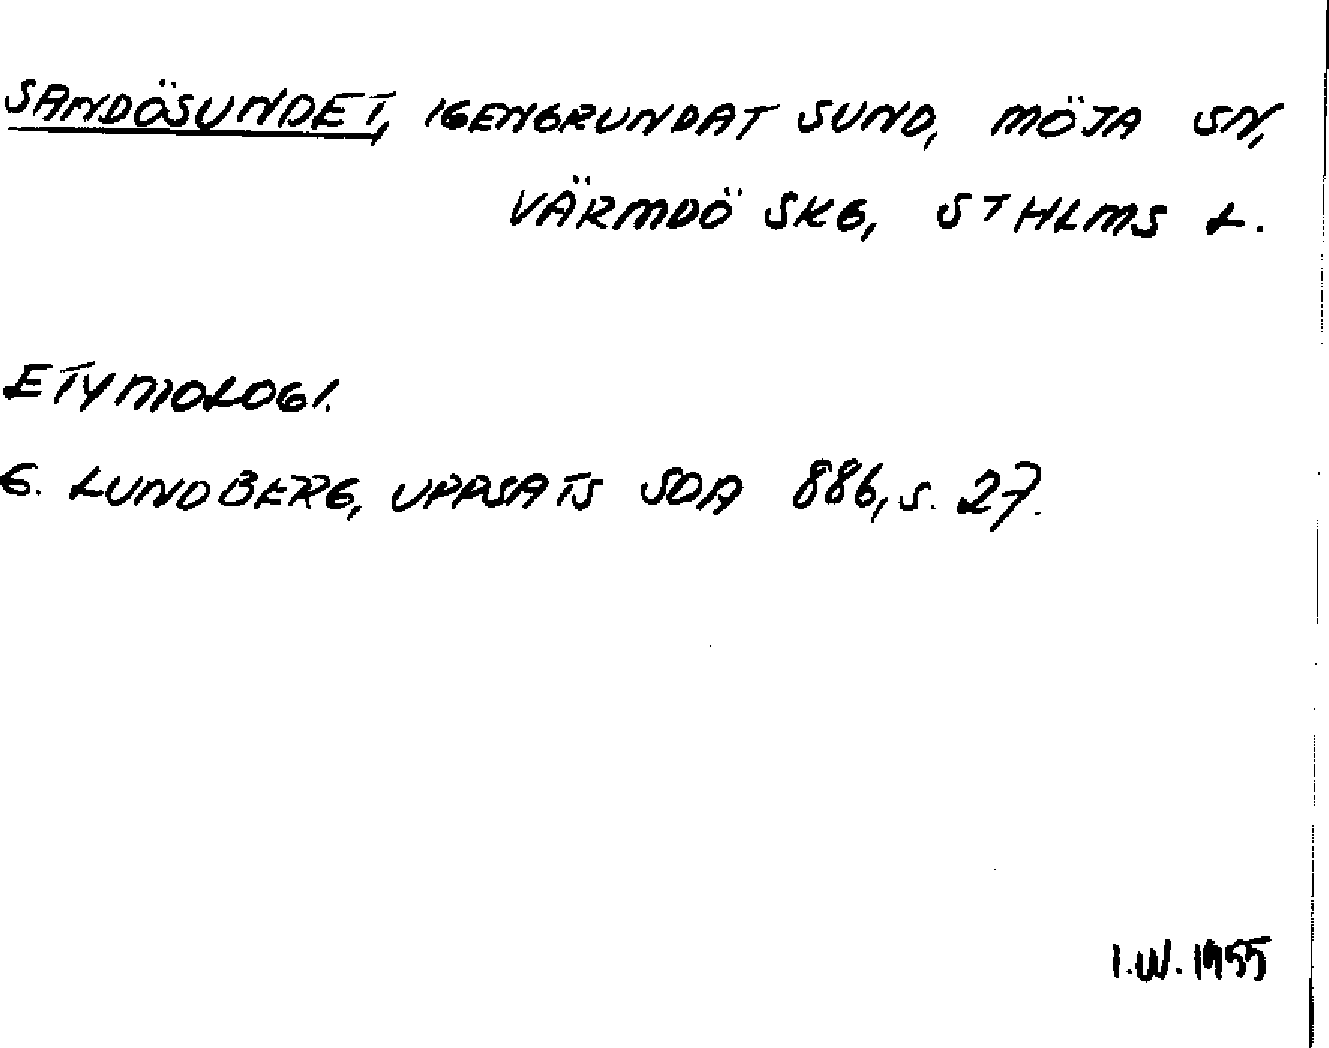 SANDÖSUNDET, IGENGRUNDAT SUND, MÖJA SN,
VÄRMDÖ SKG, STHLMS L.
ETYMOLOGI.
G. LUNDBERG, UPPSATS SOA 886, s. 27.
I.W. 1955